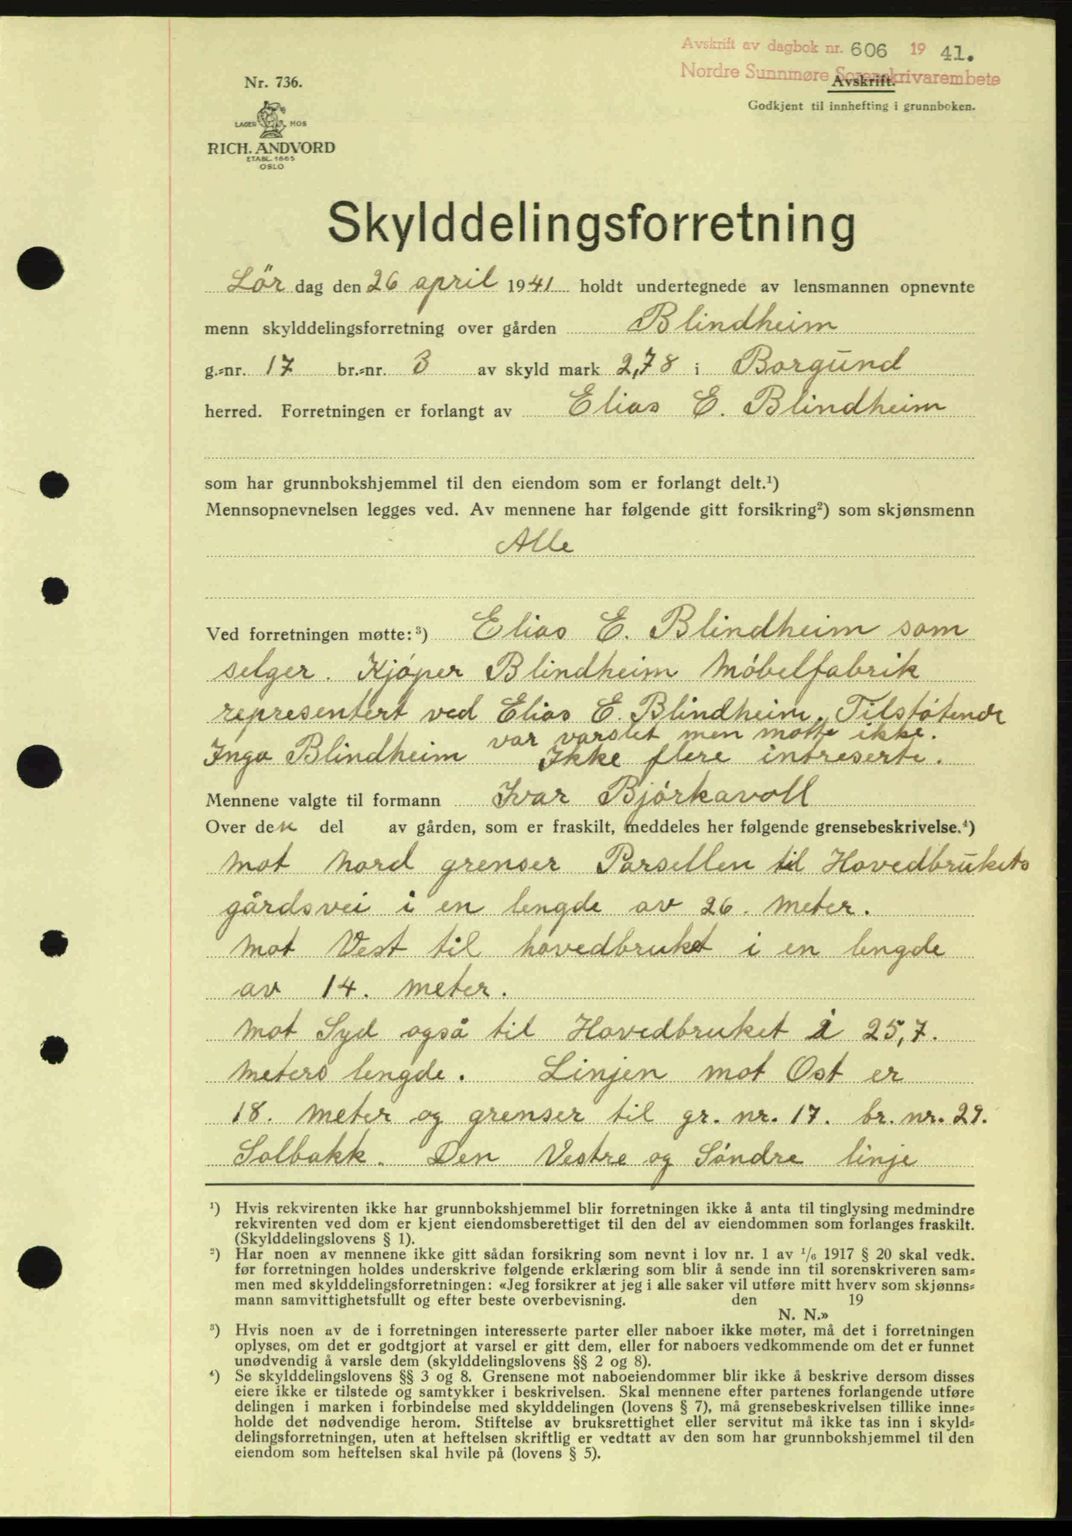 Avskrift av dagbok nr. 606 19 41.
Nordre Sunnmøre Sorenskrivarembete
Nr. 736.
Avskrift.
Godkjent til innhefting i grunnboken.
LAGER MOS
RICH. ANDVORD
ETABL. 1865
OSLO
Skylddelingsforretning
Lör dag den 26 april 1941 holdt undertegnede av lensmannen opnevnte
menn skylddelingsforretning over gården Blindheim
g.-nr. 17 br.-nr. 3 av skyld mark 2,78 i Borgund
herred. Forretningen er forlangt av Elias E. Blindheim
som har grunnbokshjemmel til den eiendom som er forlangt delt.¹)
Mennsopnevnelsen legges ved. Av mennene har følgende gitt forsikring²) som skjønsmenn
Alle
Ved forretningen møtte:³) Elias E. Blindheim som
selger. Kjóper Blindheim Móbelfabrik
representert ved Elias E. Blindheim. Tilstótende
var varslet men motte ikke.
Inga Blindheim Ikke flere intreserte.
Mennene valgte til formann Ivar Bjórkavoll
Over den del av gården, som er fraskilt, meddeles her følgende grensebeskrivelse.⁴)
Mot Nord grenser Parsellen til Hovedbrukets
gårdsvei i en lengde av 26. meter.
Mot Vest til hovedbruket i en lengde
av 14. meter.
Mot Syd også til Hovedbruket i 25,7.
meters lengde. Linjen mot Ost er
18. meter og grenser til gr. nr. 17. br. nr. 29.
Solbakk. Den Vestre og Sóndre linje
¹) Hvis rekvirenten ikke har grunnbokshjemmel blir forretningen ikke å anta til tinglysing medmindre
rekvirenten ved dom er kjent eiendomsberettiget til den del av eiendommen som forlanges fraskilt.
(Skylddelingslovens § 1).
²) Har noen av mennene ikke gitt sådan forsikring som nevnt i lov nr. 1 av ¹/₆ 1917 § 20 skal vedk.
før forretningen holdes underskrive følgende erklæring som blir å sende inn til sorenskriveren sam-
men med skylddelingsforretningen: «Jeg forsikrer at jeg i alle saker vil utføre mitt hverv som skjønns-
mann samvittighetsfullt og efter beste overbevisning. den 19
N. N.»
³) Hvis noen av de i forretningen interesserte parter eller naboer ikke møter, må det i forretningen
oplyses, om det er godtgjort at varsel er gitt dem, eller for naboers vedkommende om det er funnet
unødvendig å varsle dem (skylddelingslovens §§ 2 og 8).
⁴) Se skylddelingslovens §§ 3 og 8. Grensene mot naboeiendommer blir ikke å beskrive dersom disses
eiere ikke er tilstede og samtykker i beskrivelsen. Skal mennene efter partenes forlangende utføre
delingen i marken i forbindelse med skylddelingen (lovens § 7), må grensebeskrivelsen tillike inne-
holde det nødvendige herom. Stiftelse av bruksrettighet eller servitut må ikke tas inn i skyld-
delingsforretningen, uten at heftelsen skriftlig er vedtatt av den som har grunnbokshjemmel til den
eiendom som heftelsen skal hvile på (lovens § 5).